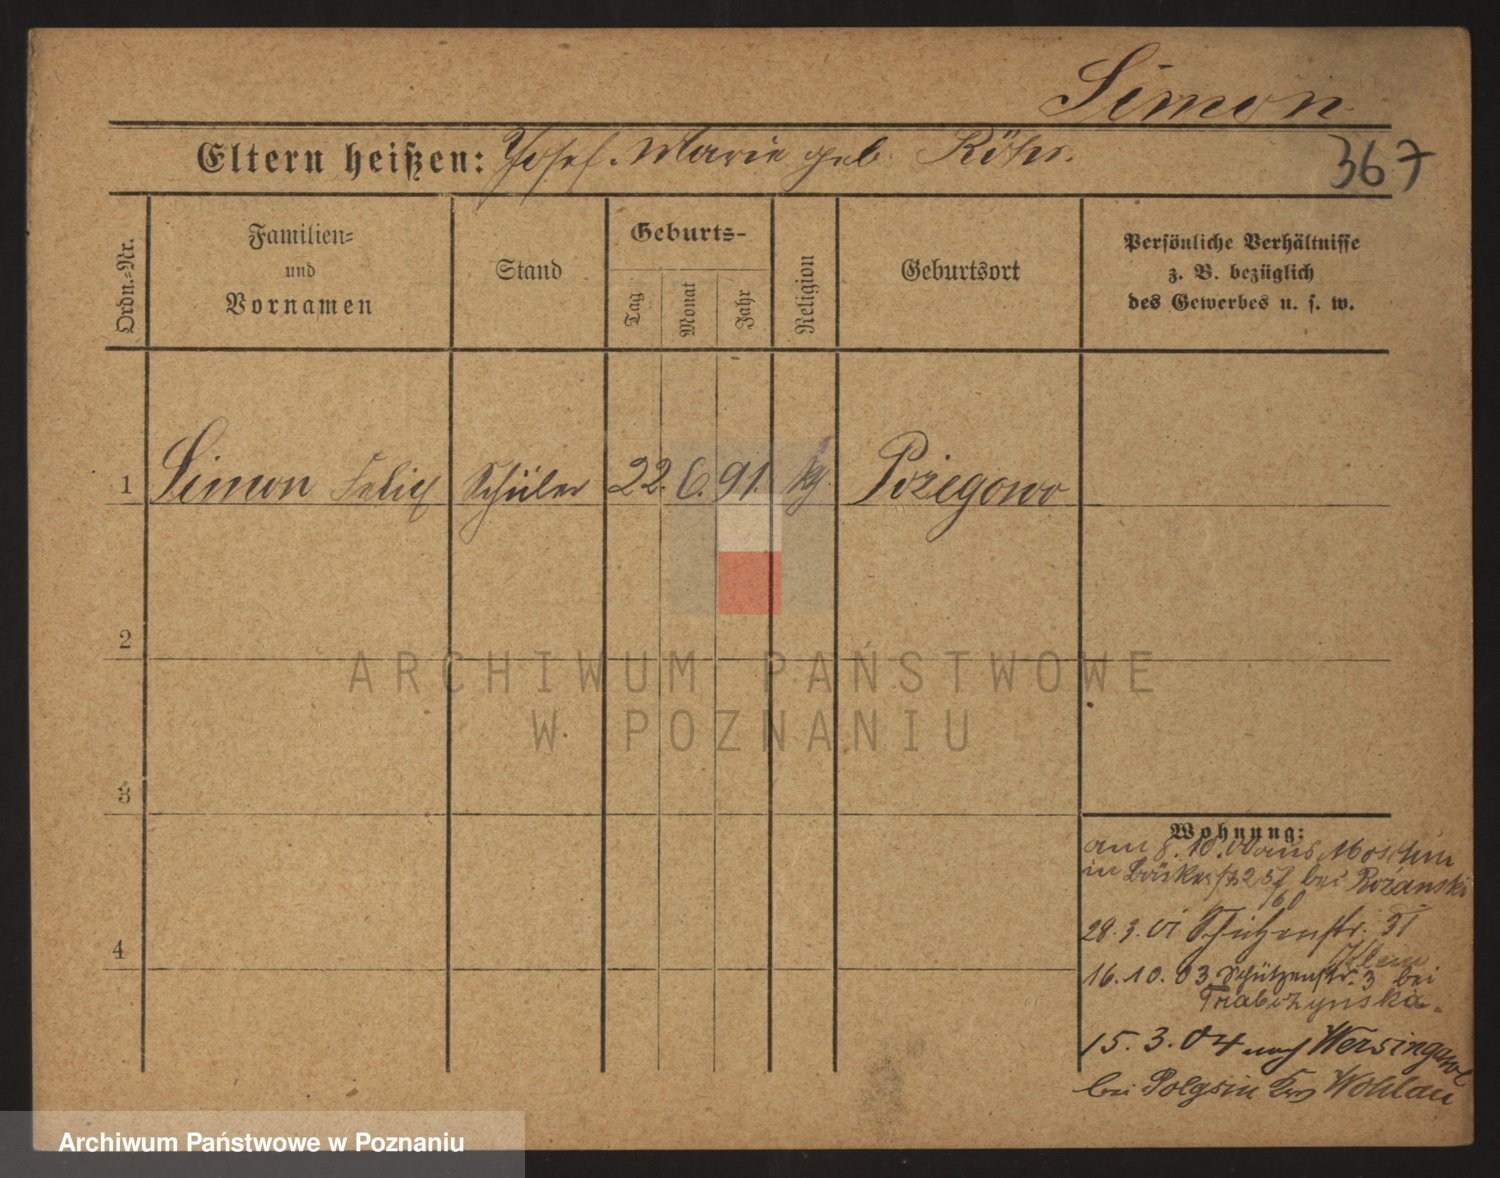 Simon
Eltern heißen: Josef. Marie geb. Röhr.
367
Ordn.-Nr.
Familien-
und
Vornamen
Stand
Geburts-
Tag
Monat
Jahr
Religion
Geburtsort
Persönliche Verhältnisse
z. B. bezüglich
des Gewerbes u. s. w.
1 Simon Felix Schüler 22. 6. 91. kg. Pożegowo
2
3
4
Wohnung:
am 8. 10. 00 aus Moschin
in bei Rożanski
28. 3. 01 Schützenstr. 31
16. 10. 03 Schützenstr. 3 bei
Trabczynska.
15. 3. 04 nach Wersingawe
bei Polgsin Krs Wohlau
ARCHIWUM PAŃSTWOWE
W POZNANIU
Archiwum Państwowe w Poznaniu